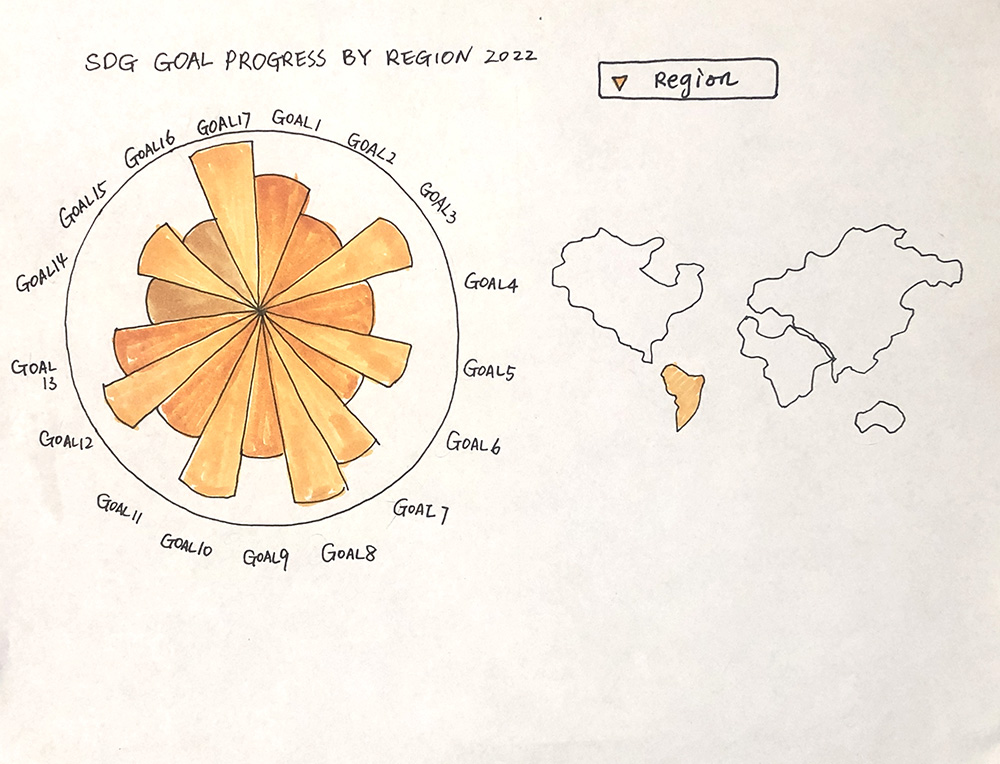 SDG GOAL PROGRESS BY REGION 2022
Region
GOAL1
GOAL2
GOAL3
GOAL4
GOAL5
GOAL6
GOAL7
GOAL8
GOAL9
GOAL10
GOAL11
GOAL12
GOAL
13
GOAL14
GOAL15
GOAL16
GOAL17